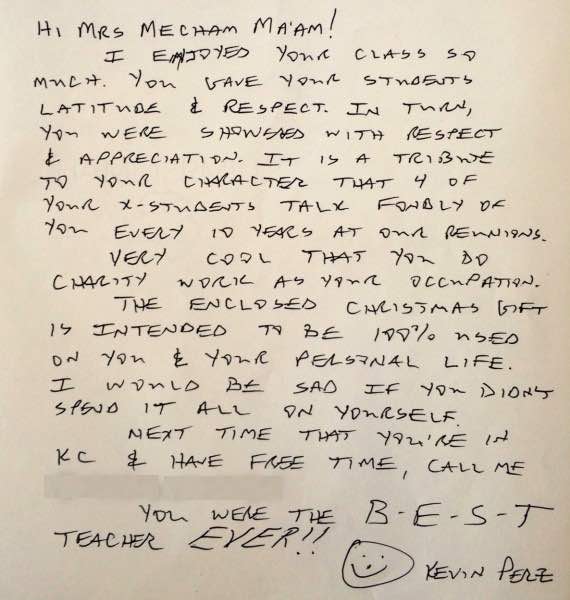 HI MRS MECHAM MA'AM!
I ENJOYED YOUR CLASS SO
MUCH. YOU GAVE YOUR STUDENTS
LATITUDE & RESPECT. IN TURN,
YOU WERE SHOWERED WITH RESPECT
& APPRECIATION. IT IS A TRIBUTE
TO YOUR CHARACTER THAT 4 OF
YOUR X-STUDENTS TALK FONDLY OF
YOU EVERY 10 YEARS AT OUR REUNIONS.
VERY COOL THAT YOU DO
CHARITY WORK AS YOUR OCCUPATION.
THE ENCLOSED CHRISTMAS GIFT
IS INTENDED TO BE 100% USED
ON YOU & YOUR PERSONAL LIFE.
I WOULD BE SAD IF YOU DIDN'T
SPEND IT ALL ON YOURSELF.
NEXT TIME THAT YOU'RE IN
KC & HAVE FREE TIME, CALL ME
YOU WERE THE B-E-S-T
TEACHER EVER!!
KEVIN PERZ